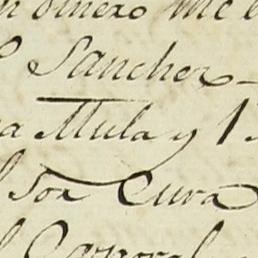 n dinero me
Sanchez
a Mula y 1
l Sor Cura
l Caporal